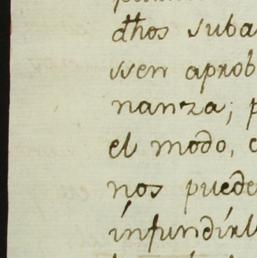 dhos suba
ssen aprob
nanza; p
el modo,
nos puede
infundirl